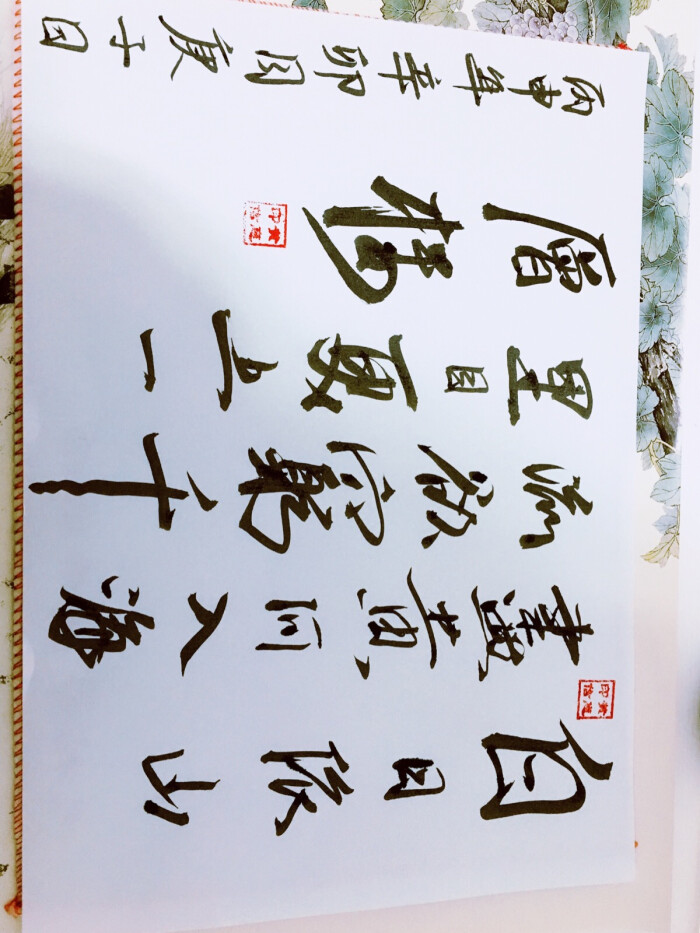 白日依山
盡黃河入海
流欲窮千
里目更上一
層樓
丙申年辛卯月庚子日